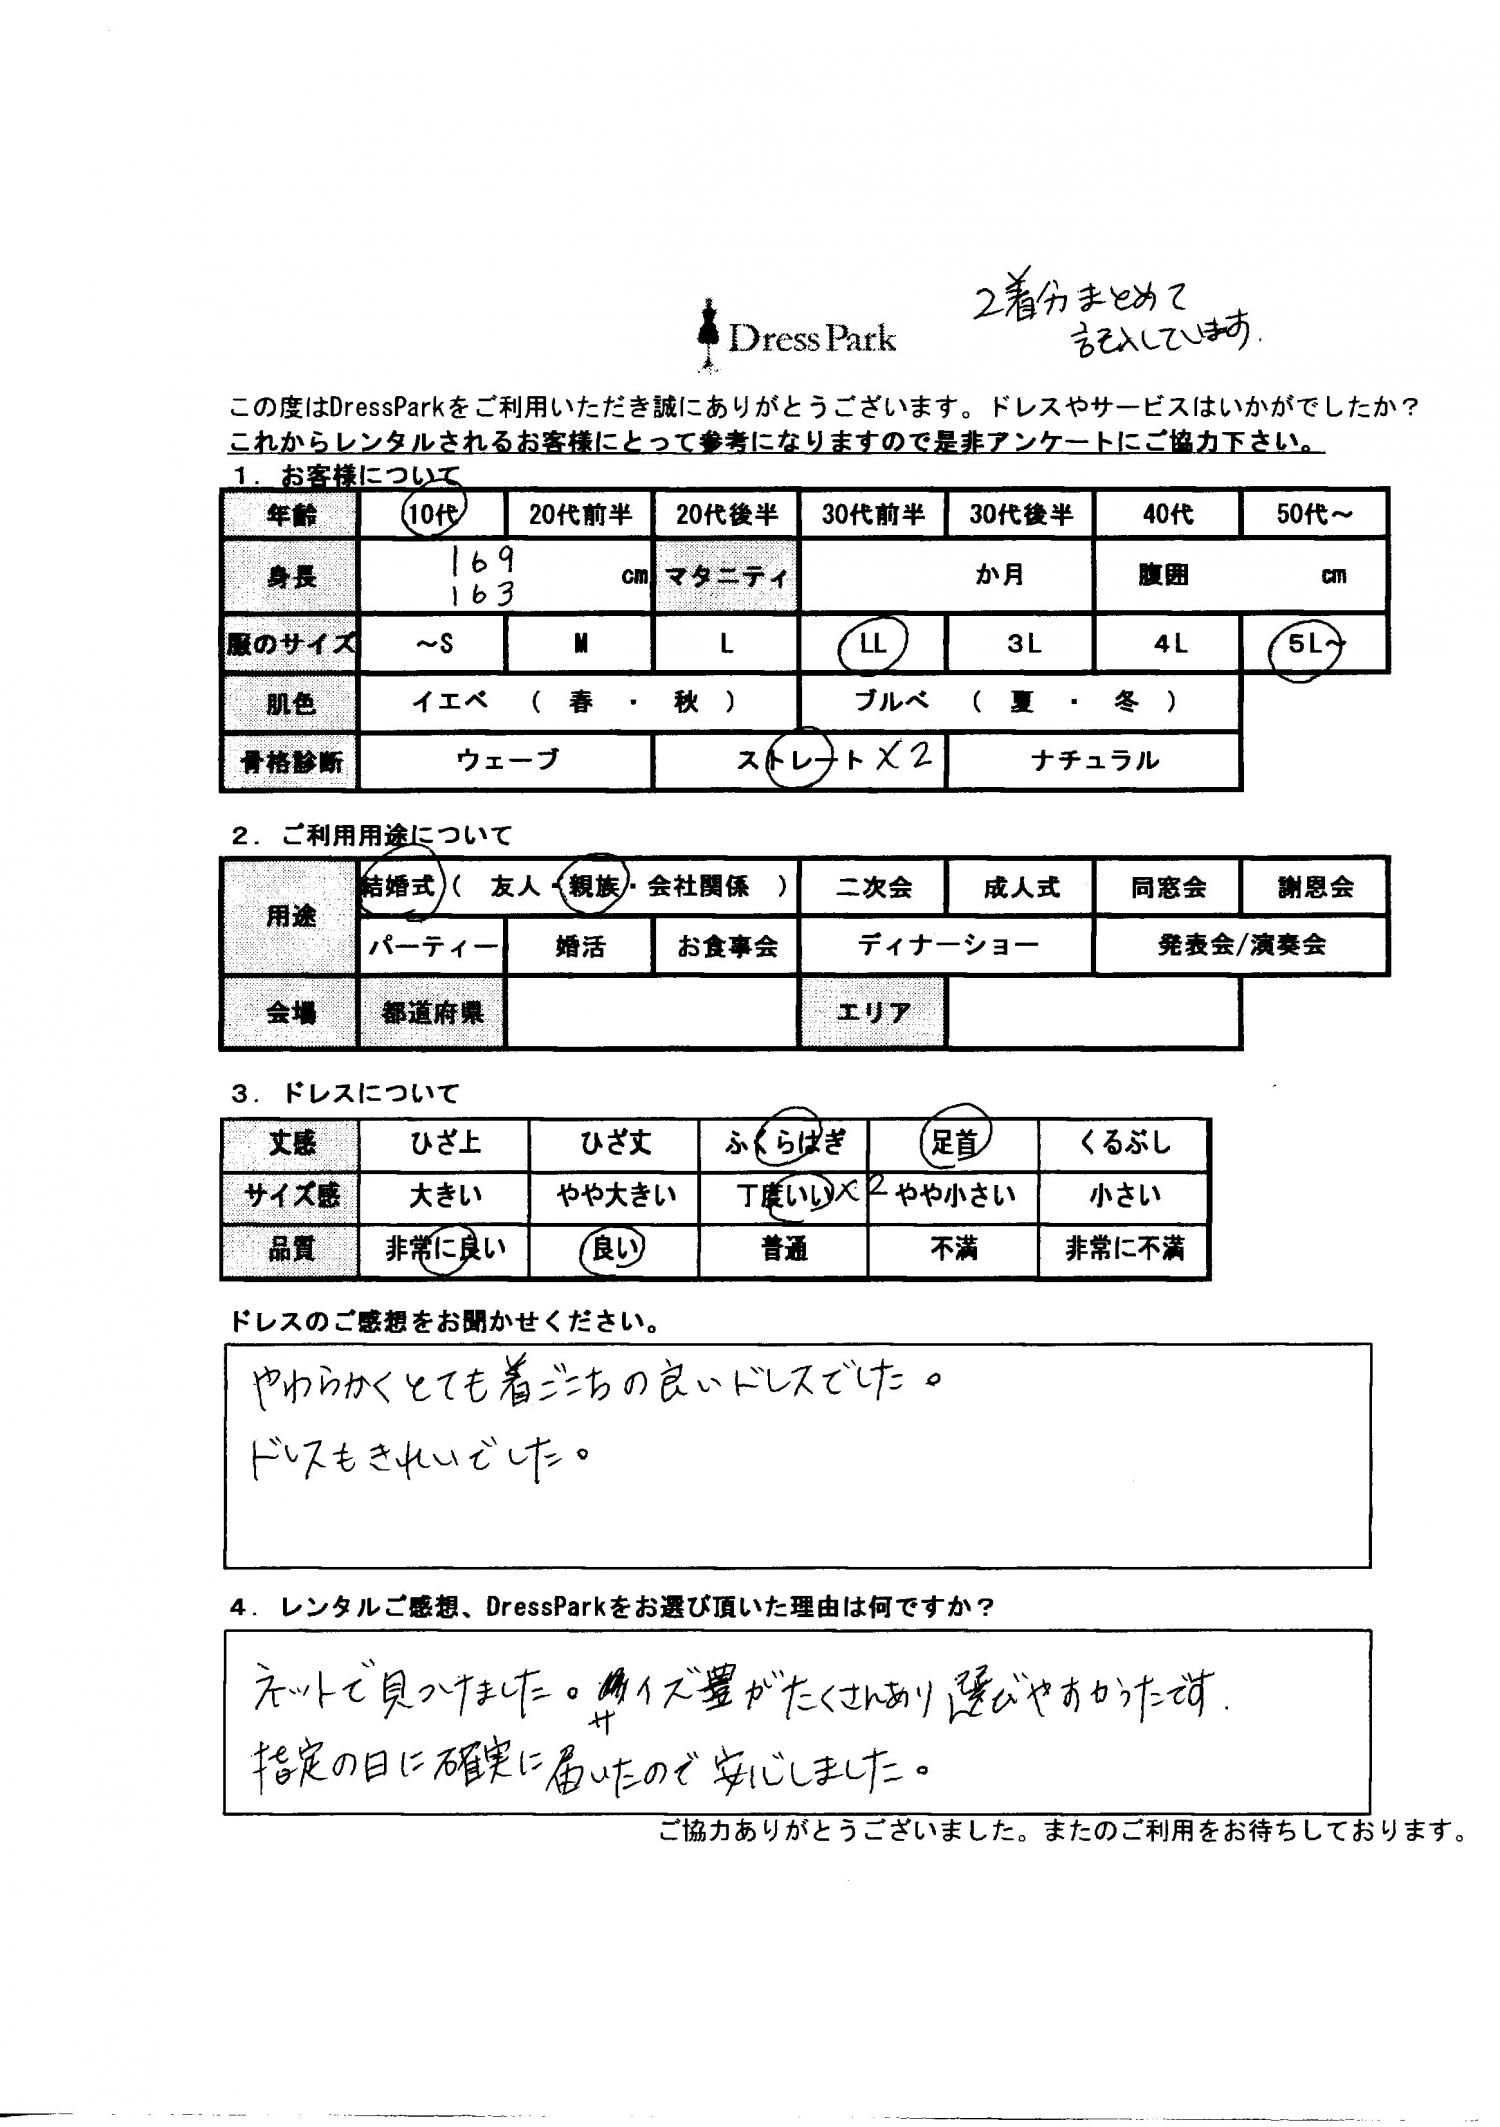 2着分まとめて
記入しています.
DressPark
この度はDressParkをご利用いただき誠にありがとうございます。ドレスやサービスはいかがでしたか？
これからレンタルされるお客様にとって参考になりますので是非アンケートにご協力下さい。
１．お客様について
年齢 10代 20代前半 20代後半 30代前半 30代後半 40代 50代～
169
身長 cm マタニティ か月 腹囲 cm
163
服のサイズ ～S M L LL 3L 4L 5L～
肌色 イエベ （ 春 ・ 秋 ） ブルベ （ 夏 ・ 冬 ）
骨格診断 ウェーブ ストレート ×2 ナチュラル
２．ご利用用途について
用途 結婚式（ 友人・親族・会社関係 ） 二次会 成人式 同窓会 謝恩会
パーティー 婚活 お食事会 ディナーショー 発表会/演奏会
会場 都道府県 エリア
３．ドレスについて
丈感 ひざ上 ひざ丈 ふくらはぎ 足首 くるぶし
サイズ感 大きい やや大きい 丁度いい ×2 やや小さい 小さい
品質 非常に良い 良い 普通 不満 非常に不満
ドレスのご感想をお聞かせください。
やわらかくとても着ごこちの良いドレスでした。
ドレスもきれいでした。
４．レンタルご感想、DressParkをお選び頂いた理由は何ですか？
ネットで見つけました。サイズ豊がたくさんあり選びやすかったです.
指定の日に確実に届いたので安心しました。
ご協力ありがとうございました。またのご利用をお待ちしております。